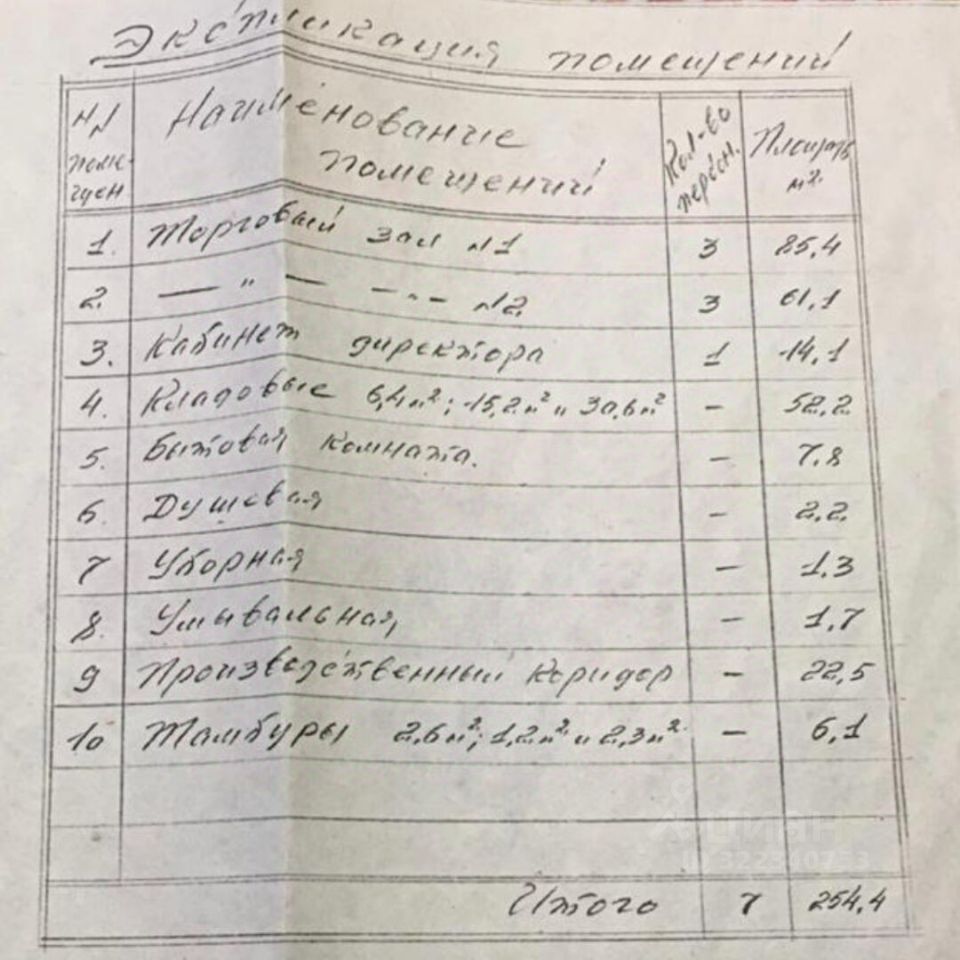 Экспликация помещений
NN помещен
Наименование помещений
Кол-во персон.
Площадь м².
1. Торговый зал N1 3 85,4
2. — " — — " — N2 3 61,1
3. Кабинет директора 1 14,1
4. Кладовые 6,4 м²; 15,2 м² и 30,6 м² — 52,2
5. Бытовая комната. — 7,8
6. Душевая — 2,2
7 Уборная — 1,3
8. Умывальная — 1,7
9 Производственный коридор — 22,5
10 Тамбуры 2,6 м²; 1,2 м² и 2,3 м². — 6,1
Итого 7 254,4
ЦИАН